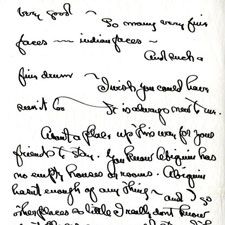 very good ~
So many very fine
faces — indian faces ~
And such a
fine drum ~
I wish you could have
seen it too It is always next to us.
About a place up this way for your
friends to stay. You know Abiquiu has
no empty houses or rooms. Abiquiu
hasn't enough of any thing ~ and I go
other places so little I really don't know